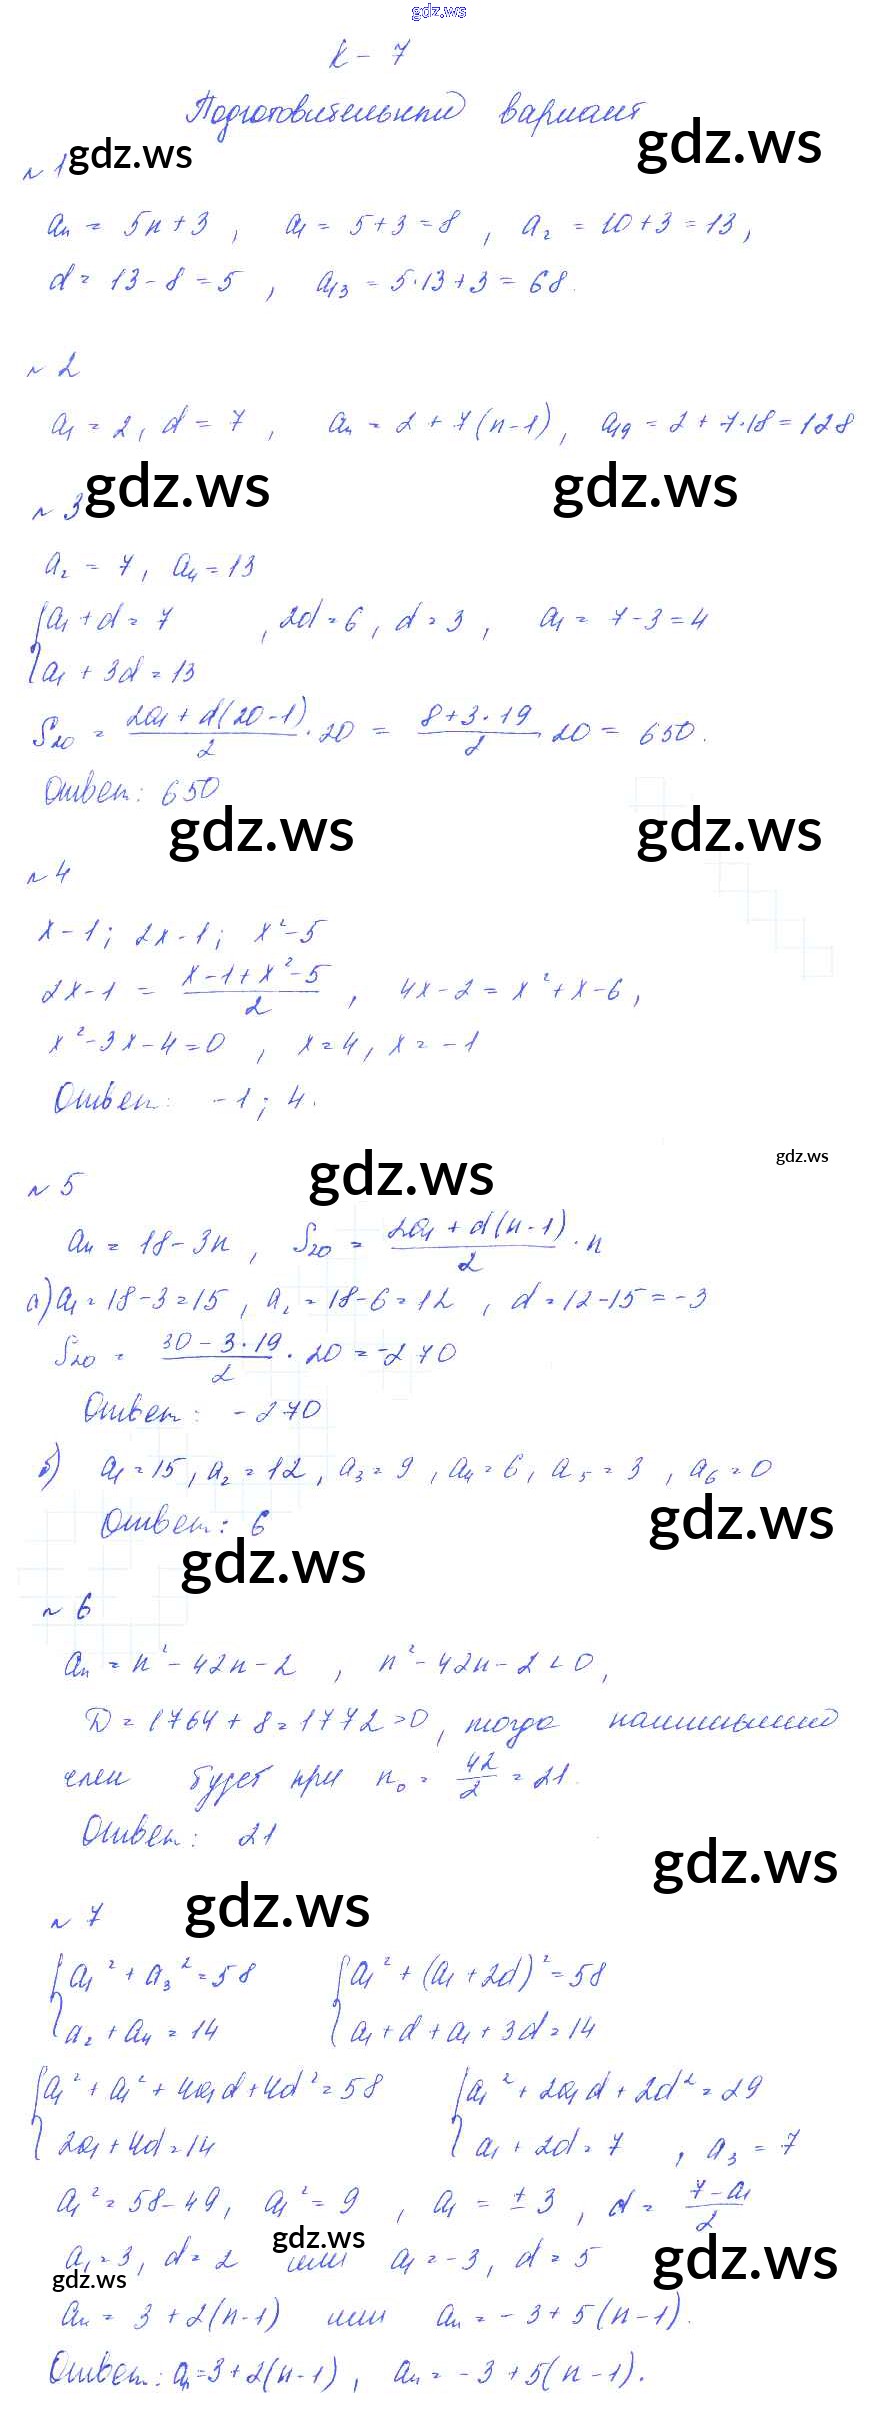 gdz.ws
К - 7
Подготовительный вариант
gdz.ws gdz.ws
№ 1
aₙ = 5n + 3, a₁ = 5 + 3 = 8, a₂ = 10 + 3 = 13,
d = 13 - 8 = 5, a₁₃ = 5·13 + 3 = 68.
№ 2
a₁ = 2, d = 7, aₙ = 2 + 7(n-1), a₁₉ = 2 + 7·18 = 128
gdz.ws gdz.ws
№ 3
a₂ = 7, a₄ = 13
{ a₁ + d = 7 , 2d = 6, d = 3, a₁ = 7 - 3 = 4
{ a₁ + 3d = 13
S₂₀ = (2a₁ + d(20-1))/2 · 20 = (8 + 3·19)/2 · 20 = 650.
Ответ: 650
gdz.ws gdz.ws
№ 4
x - 1; 2x - 1; x² - 5
2x - 1 = (x - 1 + x² - 5)/2, 4x - 2 = x² + x - 6,
x² - 3x - 4 = 0, x = 4, x = -1
Ответ: -1; 4.
gdz.ws gdz.ws
№ 5
aₙ = 18 - 3n, S₂₀ = (2a₁ + d(n-1))/2 · n
а) a₁ = 18 - 3 = 15, a₂ = 18 - 6 = 12, d = 12 - 15 = -3
S₂₀ = (30 - 3·19)/2 · 20 = -270
Ответ: -270
б) a₁ = 15, a₂ = 12, a₃ = 9, a₄ = 6, a₅ = 3, a₆ = 0
Ответ: 6
gdz.ws gdz.ws
№ 6
aₙ = n² - 42n - 2, n² - 42n - 2 < 0,
D = 1764 + 8 = 1772 > 0, тогда наименьший
член будет при n₀ = 42/2 = 21.
Ответ: 21
gdz.ws gdz.ws
№ 7
{ a₁² + a₃² = 58 { a₁² + (a₁ + 2d)² = 58
{ a₂ + a₄ = 14 { a₁ + d + a₁ + 3d = 14
{ a₁² + a₁² + 4a₁d + 4d² = 58 { a₁² + 2a₁d + 2d² = 29
{ 2a₁ + 4d = 14 { a₁ + 2d = 7, a₃ = 7
a₁² = 58 - 49, a₁² = 9, a₁ = ± 3, d = (7 - a₁)/2
gdz.ws
a₁ = 3, d = 2 или a₁ = -3, d = 5
gdz.ws gdz.ws
aₙ = 3 + 2(n-1) или aₙ = -3 + 5(n-1).
Ответ: aₙ = 3 + 2(n-1), aₙ = -3 + 5(n-1).